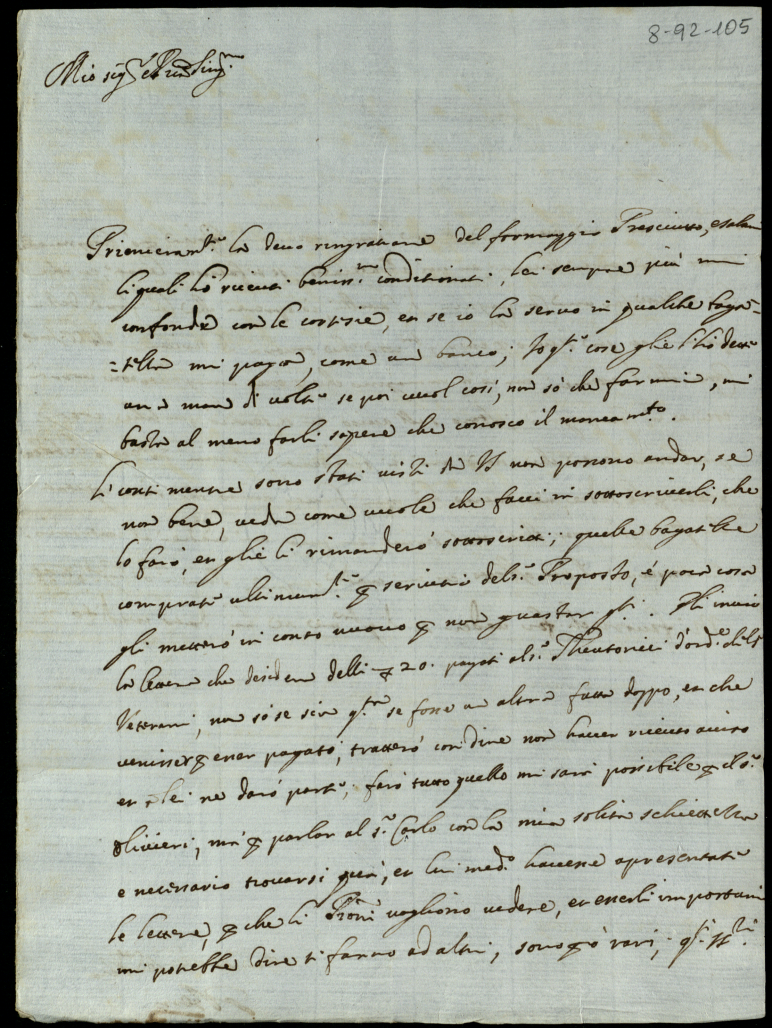 8-92-105
Mio sig.re e Pron Sing.mo
Primieram.te la devo ringratiare del formaggio Presciutto, e salami
li quali hò ricevuti beniss.mo conditionati, lei sempre più mi
confonde con le cortesie, et se io la servo in qualche baga=
=tella mi paga, come un banco; Io q.te cose glie l'hò dette
una man di volte se poi vuol così, non sò che farmi, mi
basta al meno farli sapere che conosco il mancam.to.
Li conti mentre sono stati visti da VS non possono andar, se
non bene, veda come vuole che facci in sottoscriverli, che
lo farò, et glie li rimanderò sottoscritti; quelle bagatelle
comprate ultimam.te p servitio del s.r Proposto, è poca cosa
gli metterò in conto nuovo p non guastar q.ti. Gli invio
la lettera che desidera delli 20. pagati al s.r d'ord.e del s.r
Veterani, non sò se sia q.ta se fosse un altra fatta doppo, et che
venisse p esser pagato, tratterò con dire non haver ricevuto aviso
et a lei ne darò parte, farò tutto quello mi sarà possibile p il s.r
Olivieri, mà p parlar al s.r Carlo con la mia solita schiettezza
e necessario trovarsi quà, et lui med.o havere apresentate
le lettere, p che li Proni vogliono vedere, et esserli importuni
mi potrebbe dire si fanno ad altri, sono p ò rari, q.ti